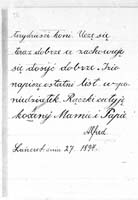 torydniści koni. Uczę się
teraz dobrze a zachowuję
się dosyć dobrze. Trio
napiszę ostatni list w po-
niedziałek. Rączki całuję
kochanej Mamie i Papie
Alfred
Łańcut dnia 27. 1894.